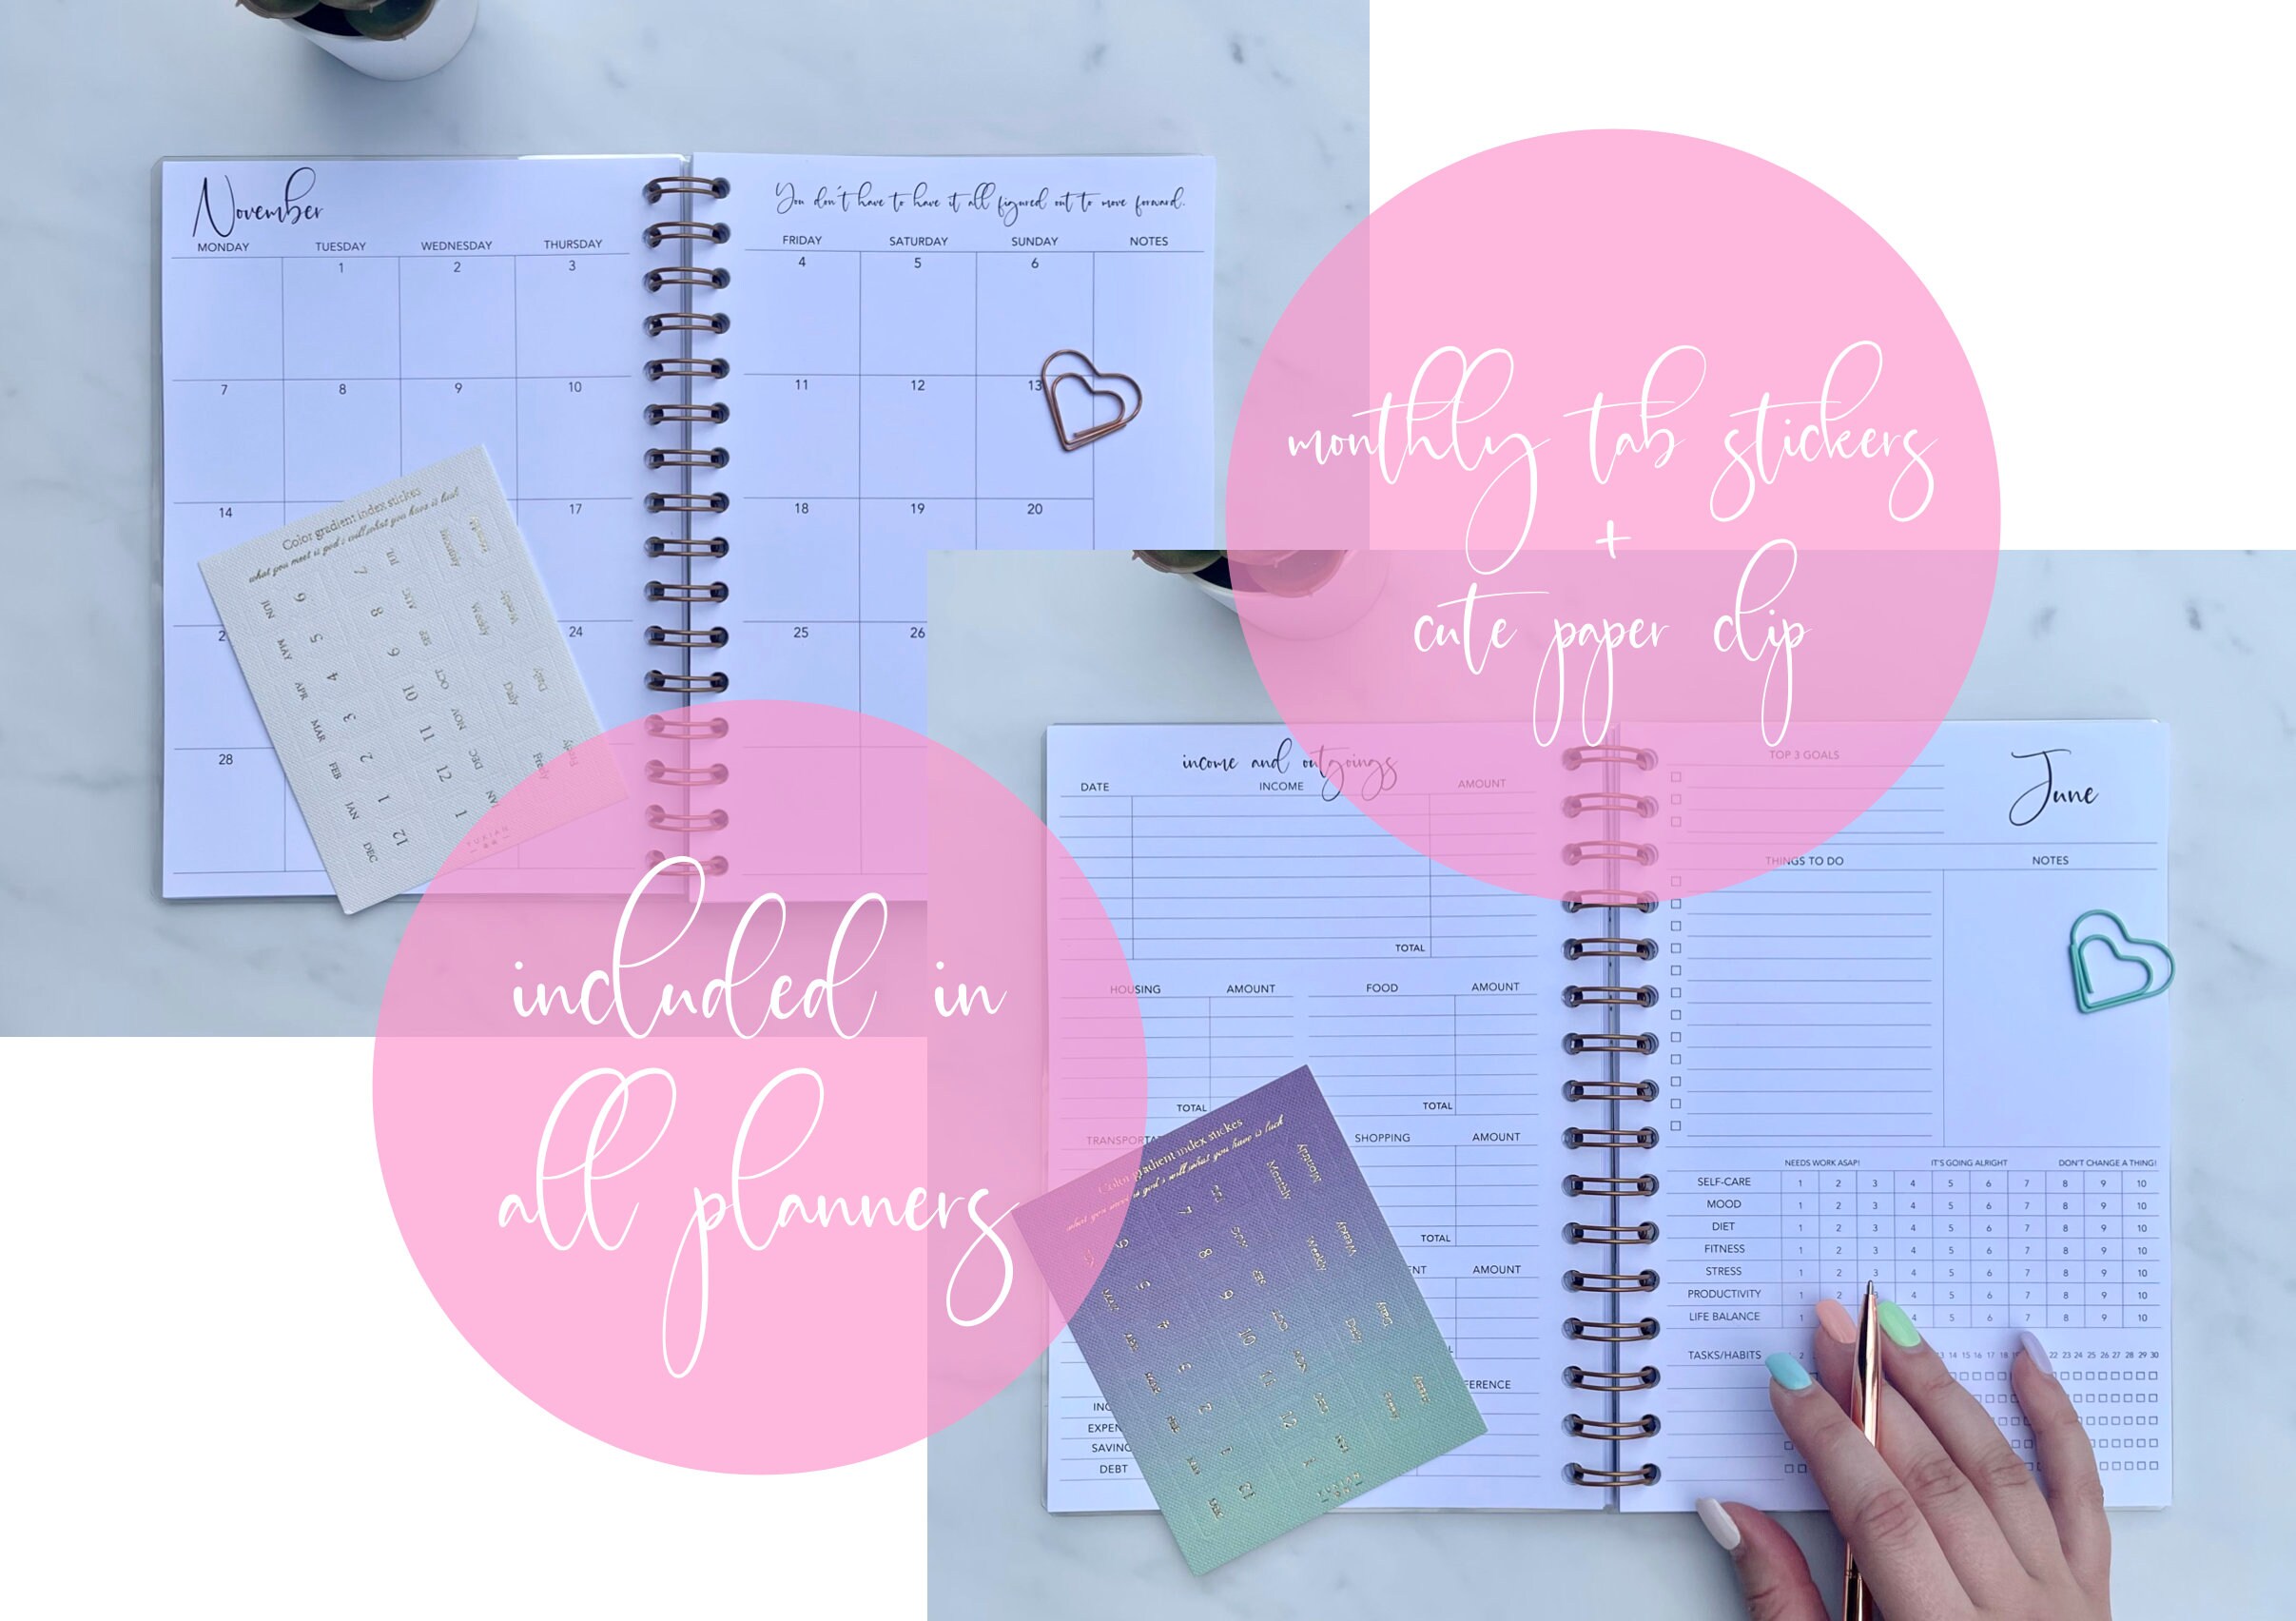 November
You don't have to have it all figured out to move forward.
MONDAY TUESDAY WEDNESDAY THURSDAY
FRIDAY SATURDAY SUNDAY NOTES
1 2 3
4 5 6
7 8 9 10
11 12 13
14 17
18 19 20
24
25 26
28
Color gradient index stickes
what you meet is god's will,what you have is luck
Monthly
Monthly
Weekly
Weekly
Daily
Daily
Freely
JUN 6
MAY 5
APR 4
MAR 3
FEB 2
JAN 1
DEC 12
7 JUL
8 AUG
9 SEP
10 OCT
11 NOV
12 DEC
1
monthly tab stickers
+
cute paper clip
included in
all planners
income and outgoings
DATE INCOME AMOUNT
TOTAL
HOUSING AMOUNT FOOD AMOUNT
TOTAL TOTAL
SHOPPING AMOUNT
TOTAL
AMOUNT
DEBT
Color gradient index stickes
what you meet is god's will,what you have is luck
Monthly
Monthly
Weekly
Weekly
Daily
Daily
TOP 3 GOALS
June
THINGS TO DO NOTES
NEEDS WORK ASAP! IT'S GOING ALRIGHT DON'T CHANGE A THING!
SELF-CARE 1 2 3 4 5 6 7 8 9 10
MOOD 1 2 3 4 5 6 7 8 9 10
DIET 1 2 3 4 5 6 7 8 9 10
FITNESS 1 2 3 4 5 6 7 8 9 10
STRESS 1 2 3 4 5 6 7 8 9 10
PRODUCTIVITY 1 2 4 5 6 7 8 9 10
LIFE BALANCE 1 4 5 6 7 8 9 10
TASKS/HABITS 2 13 14 15 16 17 18 22 23 24 25 26 27 28 29 30